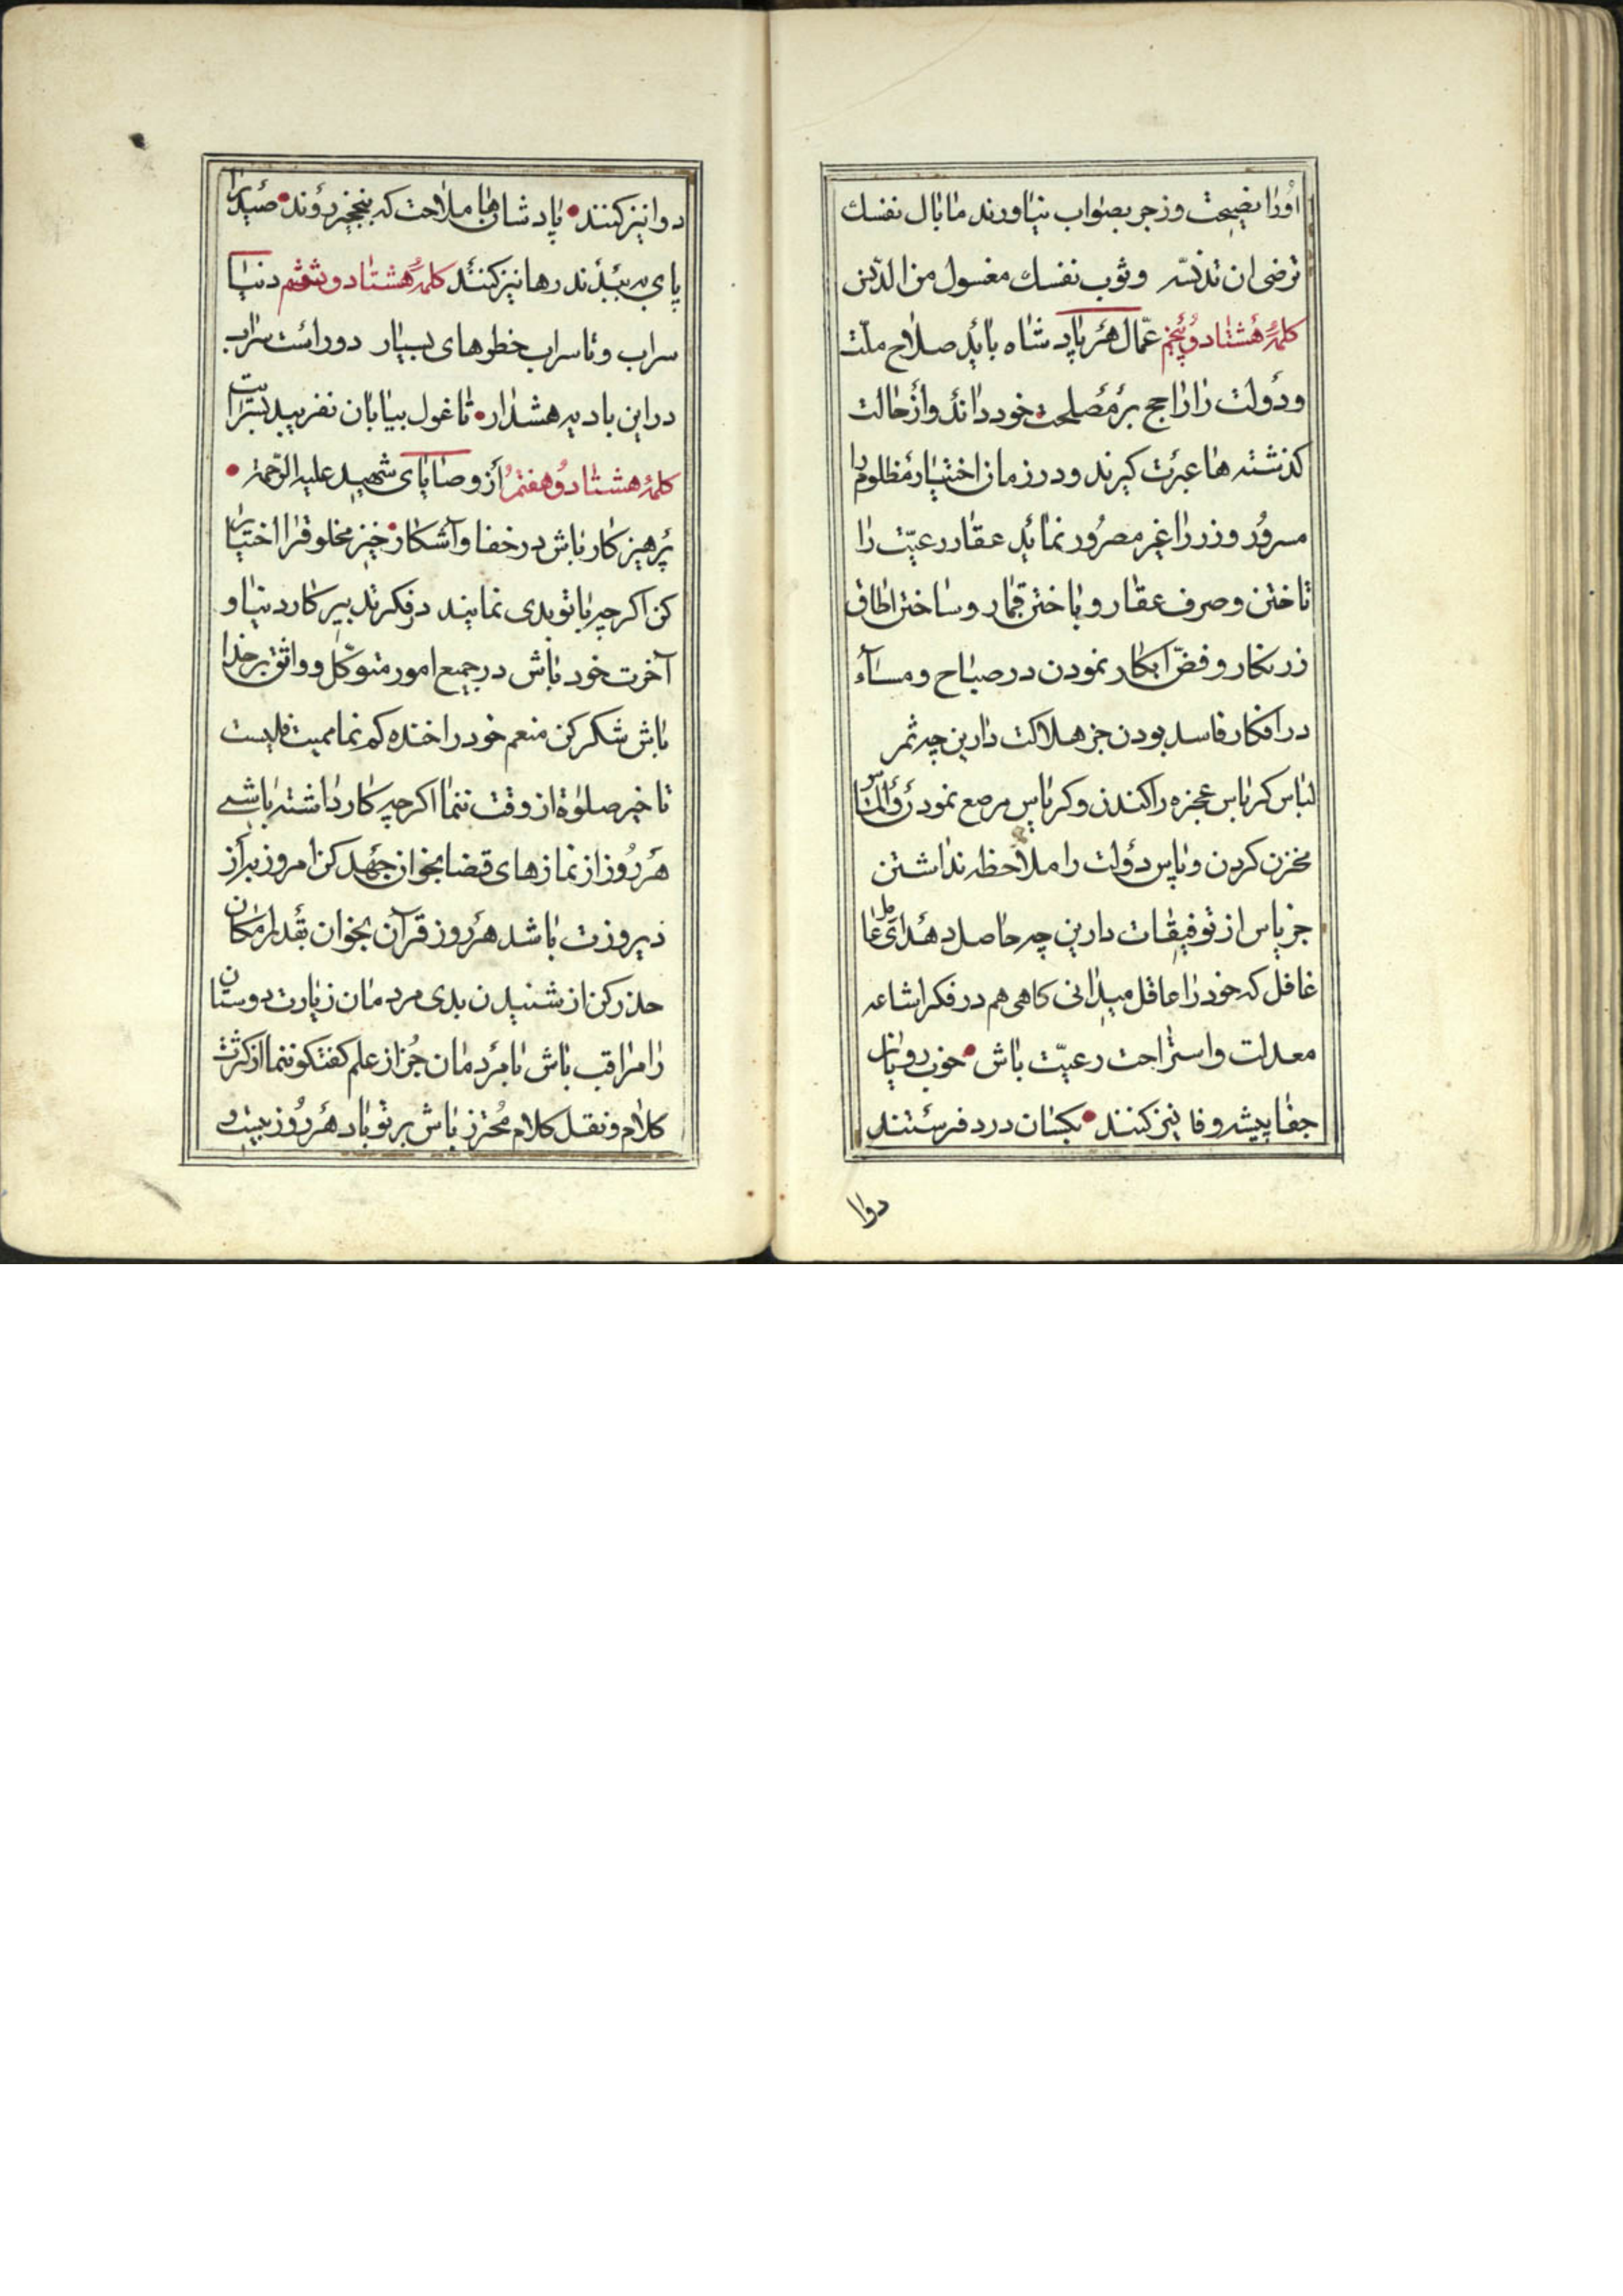 اورا نصیحت وزجر بصواب نیاورند ما بال نفسك
ترضی ان تدنسه وثوب نفسك مغسول من الدنس
کلمهٔ هشتاد و پنجم عمال هر پادشاه باید صلاح ملت
ودولت را راجح بر مصلحت خود دانند واز حالت
کذشته ها عبرت کیرند ودر زمان اختیار مظلوم را
مسرور و زر را غیر مصرور نماید عقار رعیت را
تاختن و صرف عقار و باختن قمار و ساختن اطاق
زرنکار و فض ابکار نمودن در صباح و مساء
در افکار فاسد بودن جز هلاکت دارین چه ثمر
لباس کرباس عجزه را کندن و کرباس مرصع نمودن
مخزن کردن و پاس دولت را ملاحظه نداشتن
جز یاس از توفیقات دارین چه حاصل دهد ای عامل
غافل که خود را عاقل میدانی کاهی هم در فکر اشاعه
معدلت و استراحت رعیت باش خوب رویان
جفا پیشه وفا نیز کنند بکسان درد فرستند
دوا
دوا نیز کنند پادشاهان ملاحت که بنخجیر روند صید را
پای به بندند رها نیز کنند کلمهٔ هشتاد و ششم دنیا
سراب و تا سراب خطوهای بسیار دور است سراب
در این بادیه هشدار تا غول بیابان نفریبد بسرابت
کلمهٔ هشتاد و هفتم از وصایای شهید علیه الرحمه
پرهیز کار باش در خفا و آشکار خیر مخلوق را اختیار
کن اکرچه با تو بدی نمایند در فکر تدبیر کار دنیا و
آخرت خود باش در جمیع امور متوکل و واثق بر خدا
باش شکر کن منعم خود را خنده کم نما ممیت قلبست
تاخیر صلوة از وقت ننما اکرچه کار داشته باشی
هر روز از نمازهای قضا بخوان جهد کن امروز به از
دیروزت باشد هر روز قرآن بخوان بقدر امکان
حذر کن از شنیدن بدی مردمان زیارت دوستان
را مراقب باش با مردمان جز از علم کفتکو ننما از کثرت
کلام و نقل کلام محترز باش بر تو باد هر روز بیست و